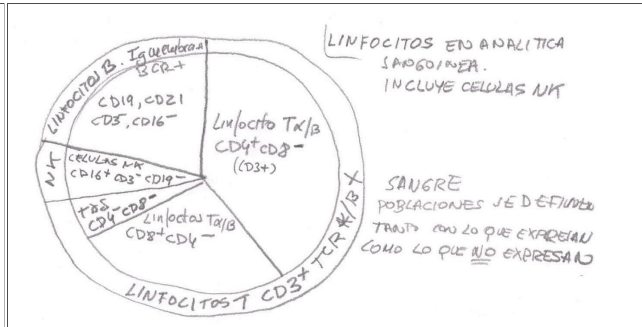 LINFOCITOS EN ANALITICA
SANGUINEA.
INCLUYE CELULAS NK
LINFOCITOS B. Igmembrana
BCR+
CD19, CD21
CD3⁻, CD16⁻
Linfocito Tα/β
CD4⁺CD8⁻
(CD3+)
NK
CELULAS NK
CD16⁺ CD3⁻ CD19⁻
CD4⁻ CD8⁻
Linfocitos Tα/β
CD8⁺CD4⁻
LINFOCITOS T CD3⁺ TCR α/β
SANGRE
POBLACIONES SE DEFINEN
TANTO CON LO QUE EXPRESAN
COMO LO QUE NO EXPRESAN